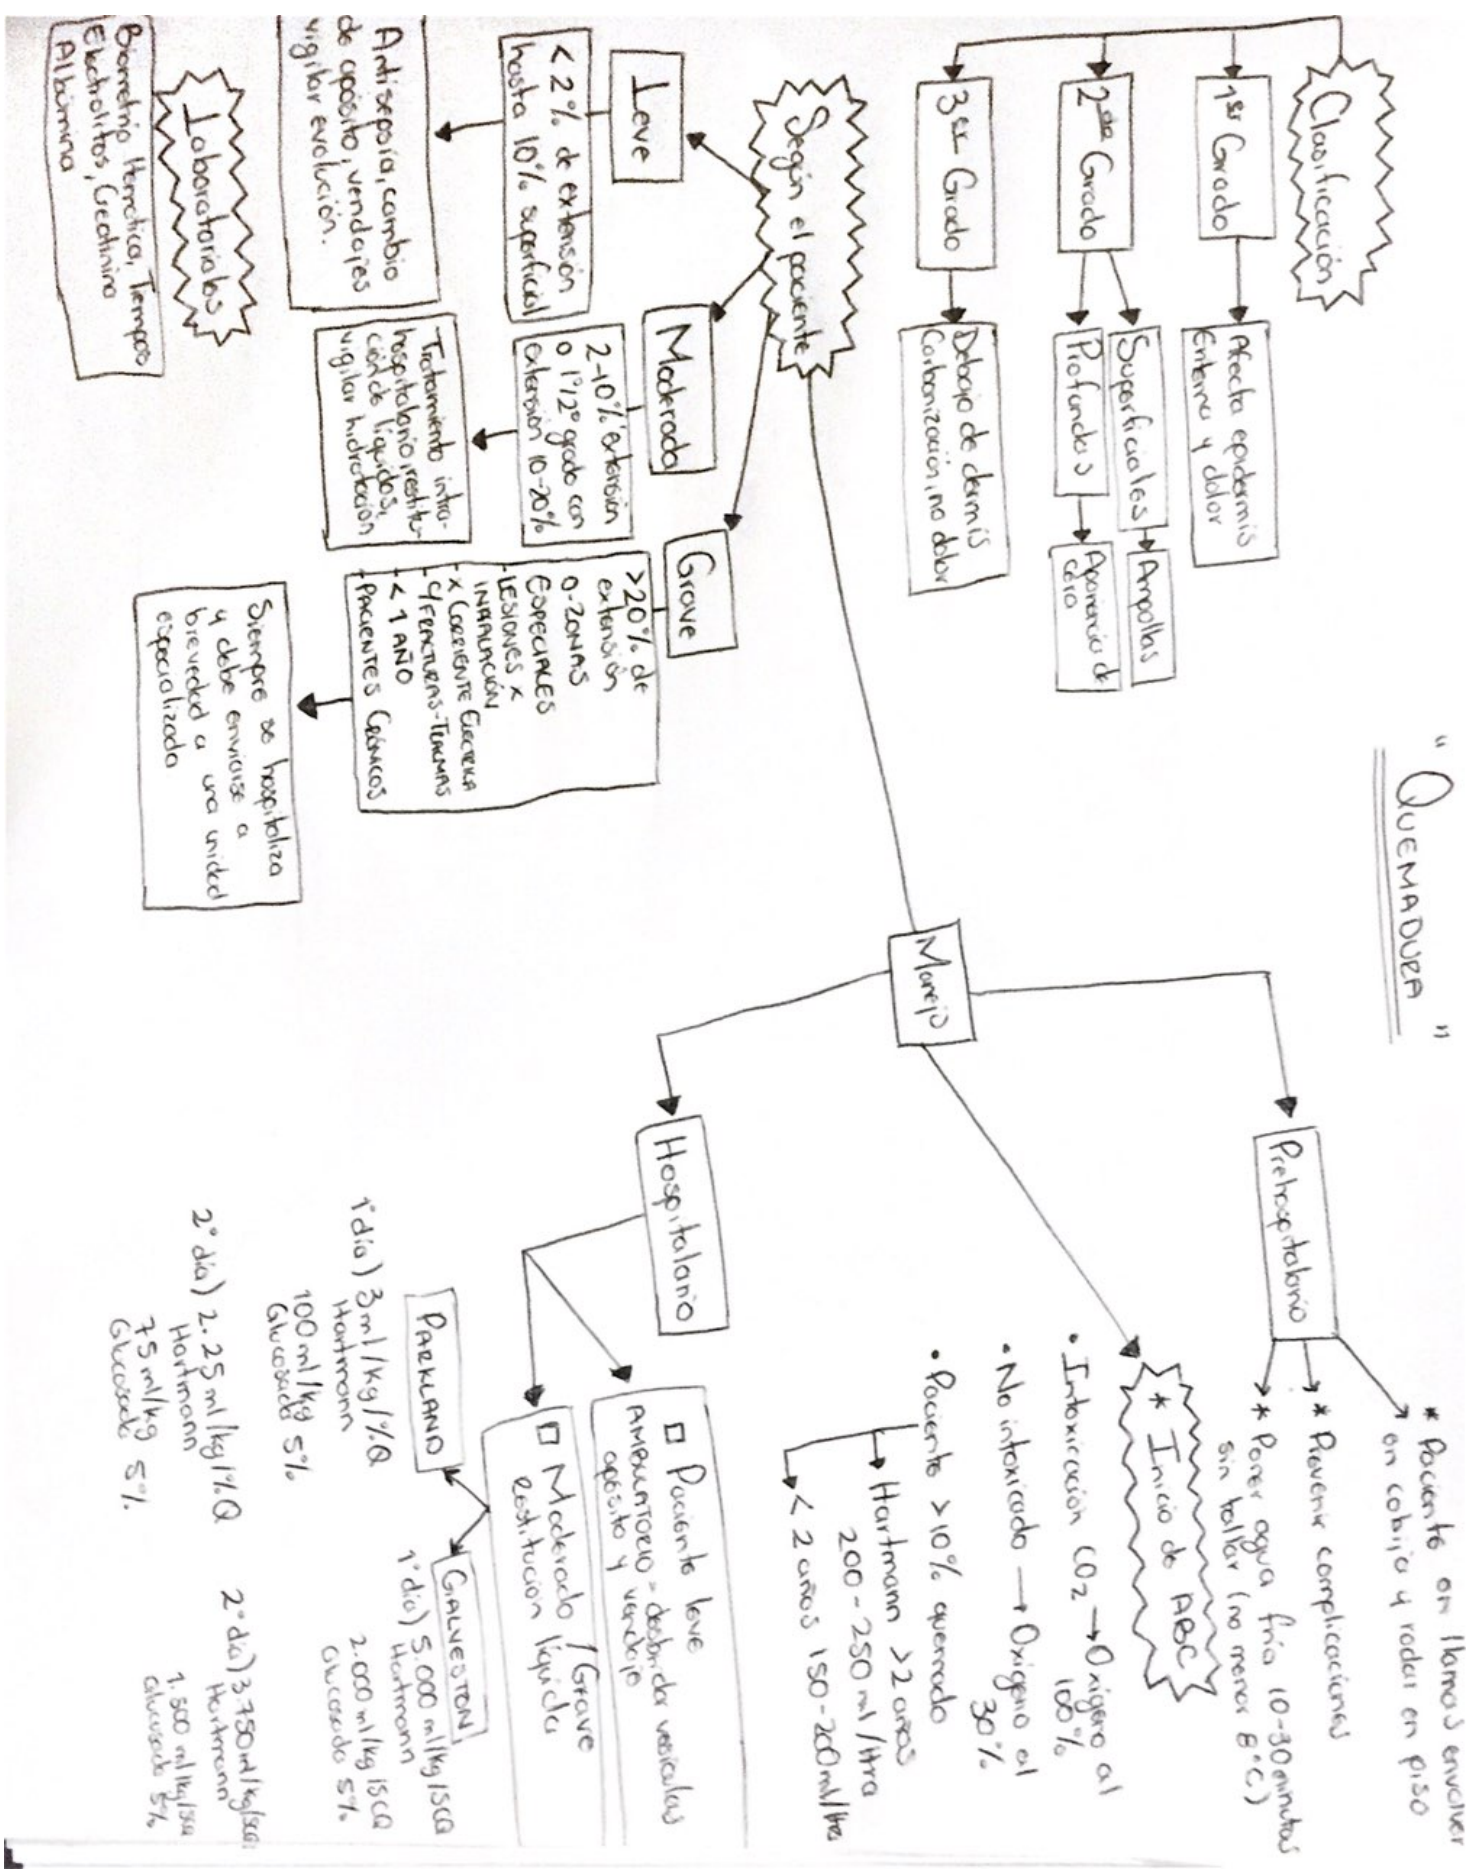 " QUEMADURA "
Clasificación
1er Grado
Afecta epidermis
Eritema y dolor
2do Grado
Superficiales
Ampollas
Profundas
Apariencia de
cera
3er Grado
Debajo de dermis
Carbonización, no dolor
Según el paciente
Leve
< 2% de extensión
hasta 10% superficial
Antisepsia, cambio
de apósito, vendajes
vigilar evolución.
Moderada
2-10% extensión
o 1°/2° grado con
extensión 10-20%
Tratamiento intra-
hospitalario, restitu-
ción de líquidos,
vigilar hidratación
Grave
>20% de
extensión
O-ZONAS
ESPECIALES
-LESIONES X
INHALACIÓN
-X CORRIENTE ELECTRICA
-C/FRACTURAS-
-< 1 AÑO
-PACIENTES CRÓNICOS
Siempre se hospitaliza
y debe enviarse a
brevedad a una unidad
especializada
Laboratoriales
Biometria Hematica, Tiempos
Electrolitos, Creatinina
Albúmina
Manejo
Prehospitalario
* Paciente en llamas envolver
en cobija y rodar en piso
* Prevenir complicaciones
* Poner agua fría 10-30 minutos
sin tallar (no menor 8°C)
* Inicio de ABC
• Intoxicación CO2 → Oxígeno al
100%
• No intoxicado → Oxígeno al
30%
• Paciente >10% quemado
Hartmann >2 años
200-250 ml/Hra
< 2 años 150-200ml/Hra
Hospitalario
□ Paciente leve
AMBULATORIO = desbridar vesículas
apósito y vendaje
□ Moderado / Grave
restitución líquida
PARKLAND
1° día) 3ml/kg/%Q
Hartmann
100 ml/kg
Glucosado 5%
2° día) 2.25 ml/kg/%Q
Hartmann
75 ml/kg
Glucosado 5%
GALVESTON
1° día) 5.000 ml/kg/SCQ
Hartmann
2.000 ml/kg/SCQ
Glucosado 5%
2° día) 3.750 ml/kg/SCQ
Hartmann
1.500 ml/kg/SCQ
Glucosado 5%